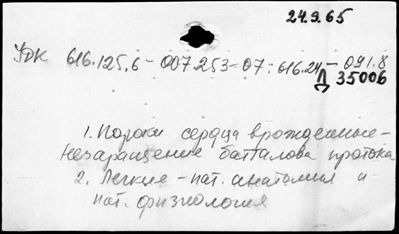 24.9.65
УДК 616.125.6-007.253-07:616.24-091.8
Д 35006
1. Пороки сердца врожденные-
незаращение баталова протока
2. Легкие - пат. анатомия и
пат. физиология